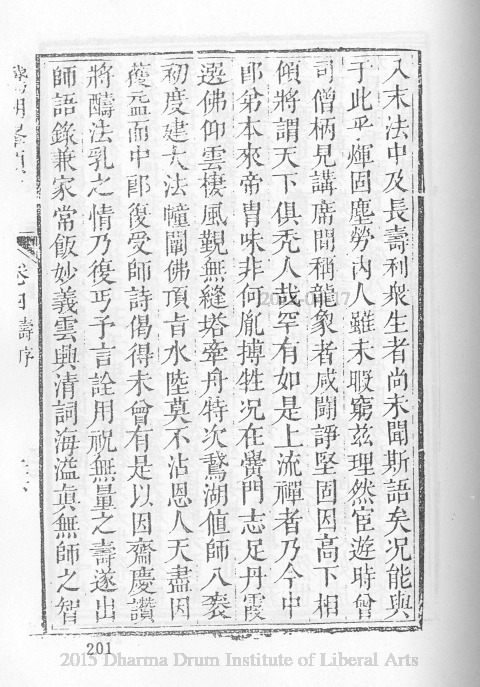 入末法中及長壽利衆生者尚未聞斯語矣况能與
于此乎煇固塵勞內人雖未暇窮茲理然宦遊時曾
司僧柄見講席間稱龍象者咸鬪諍堅固因高下相
傾將謂天下俱禿人哉罕有如是上流禪者乃今中
郎弟本來帝胄味非何胤搏牲况在黌門志足丹霞
選佛仰雲棲風覲無縫塔牽舟特次鵞湖值師八袠
初度建大法幢闡佛頂旨水陸莫不沾恩人天盡因
獲益而中郎復受師詩偈得未曾有是以因齋慶讚
將醻法乳之情乃復丐予言詮用祝無量之壽遂出
師語錄兼家常飯妙義雲興清詞海溢眞無師之智
卷四 壽序
201
2015 Dharma Drum Institute of Liberal Arts